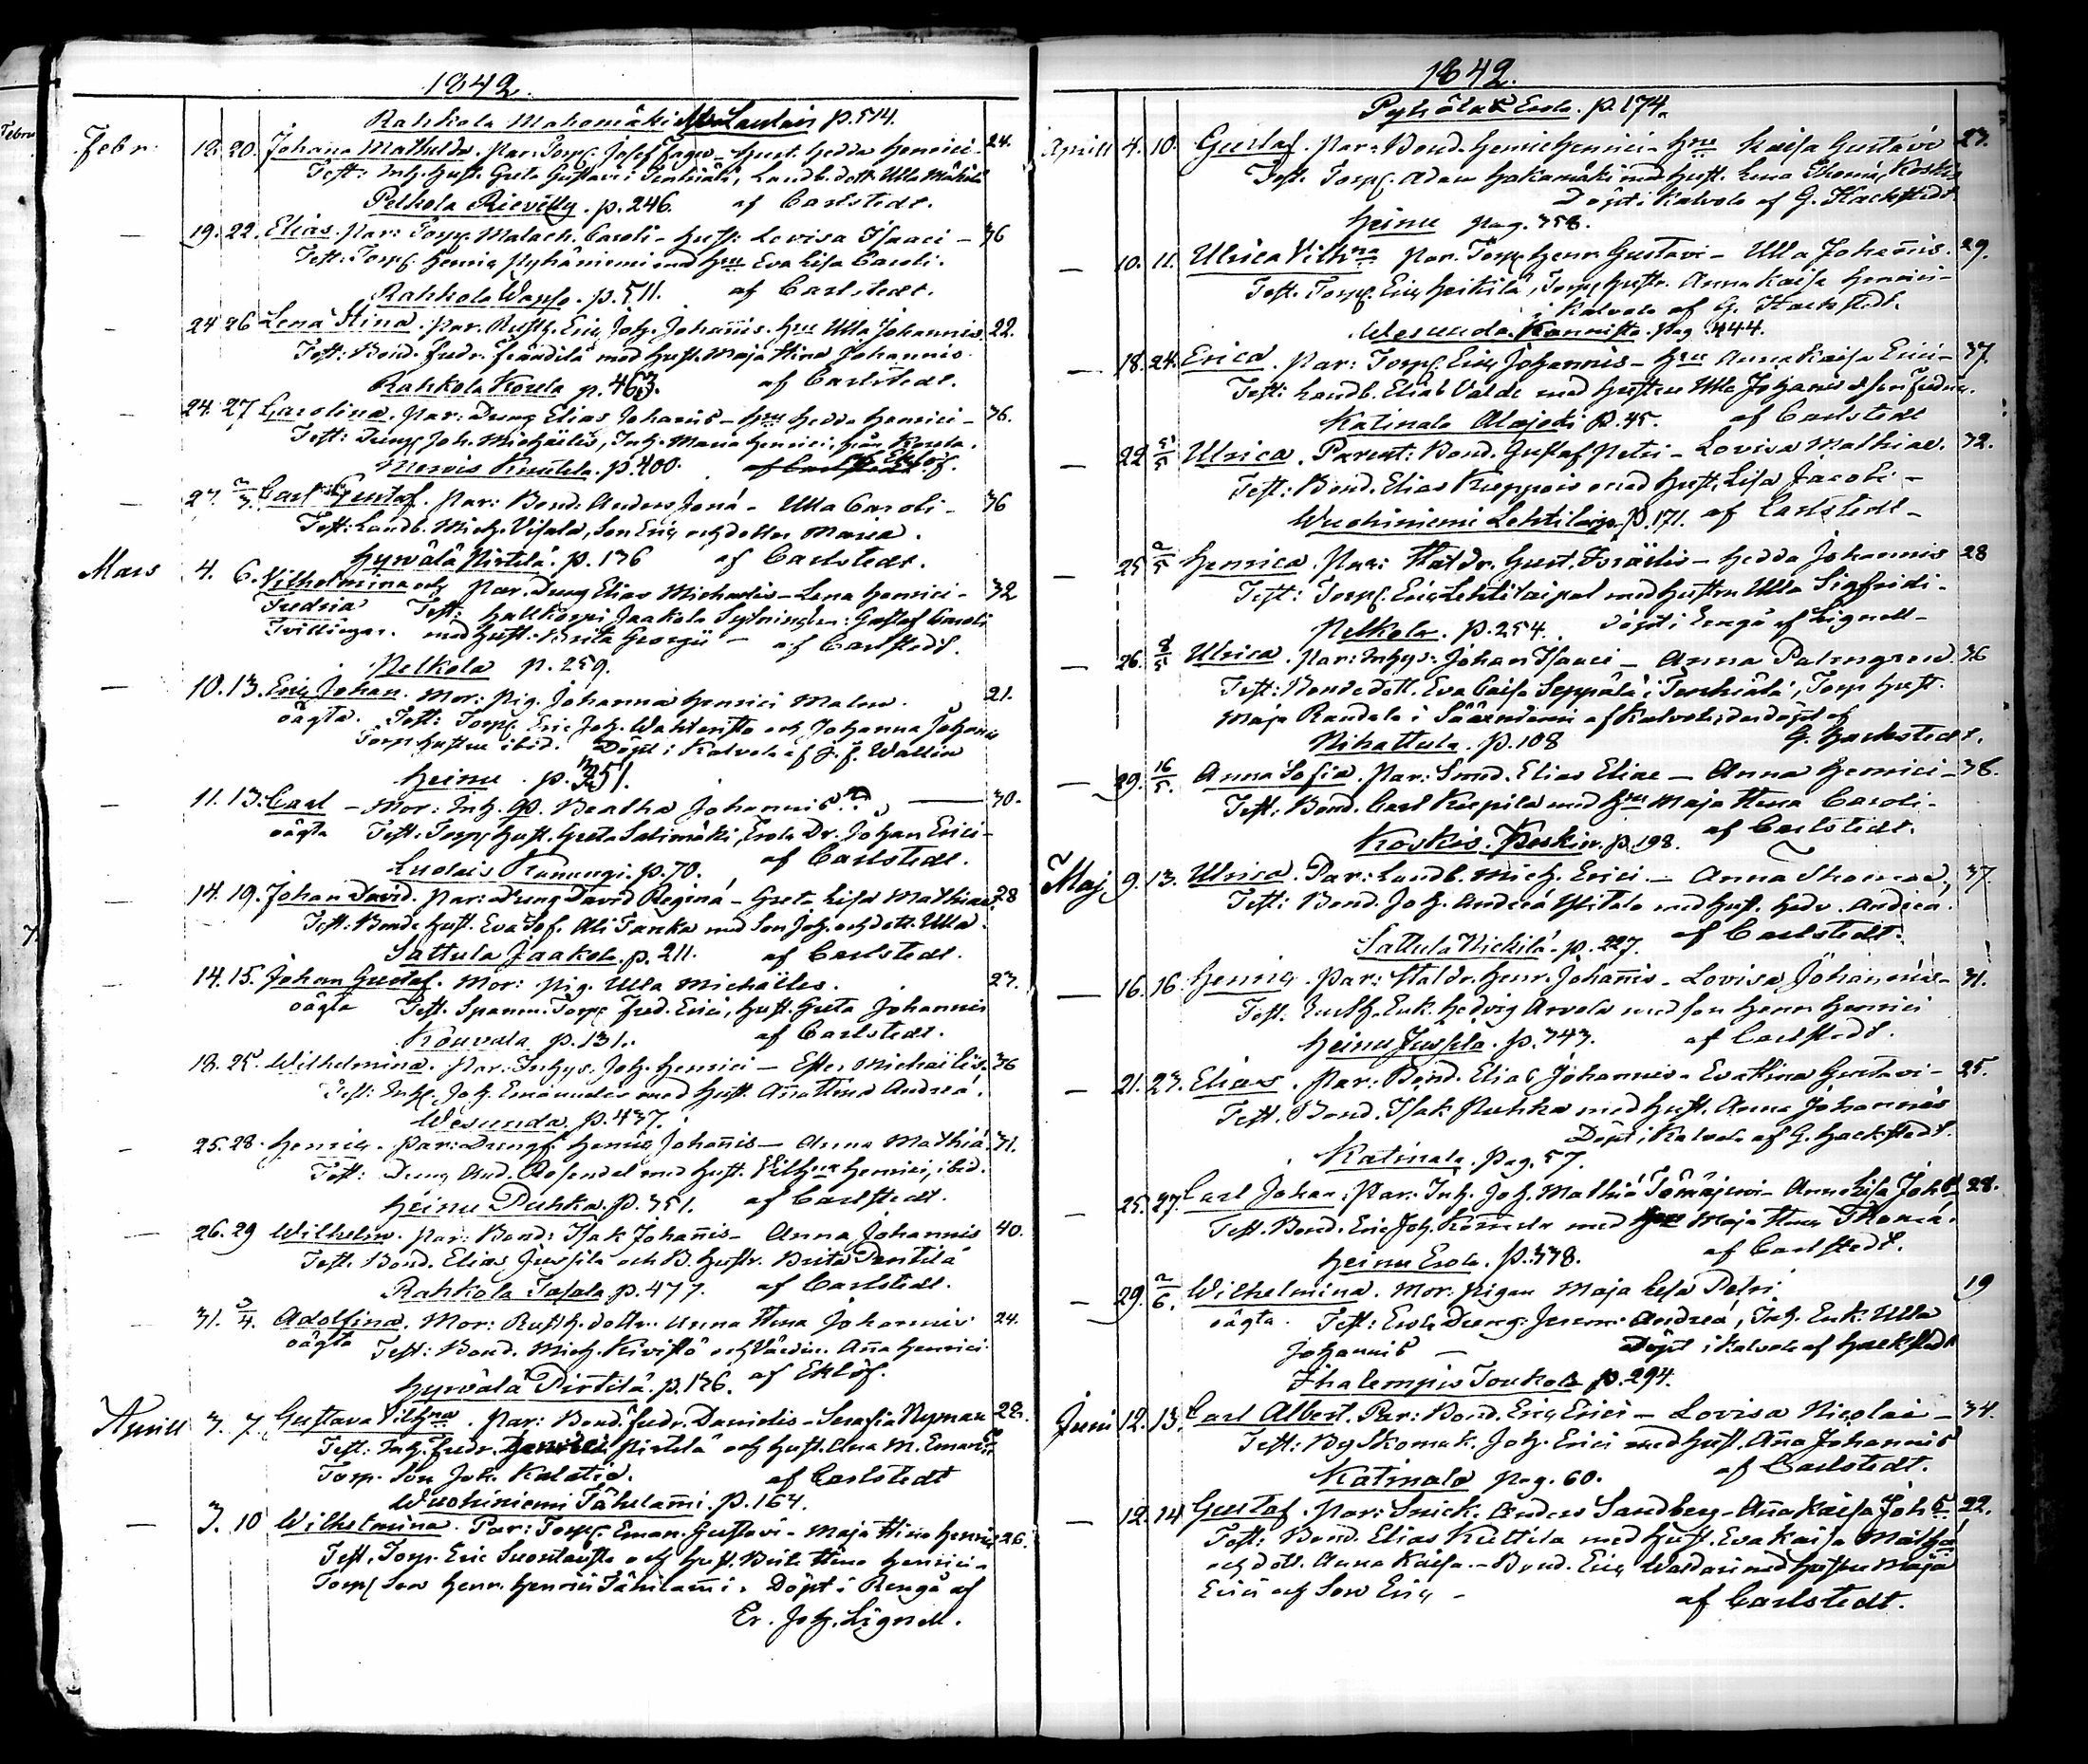 1842.
Rahkola Mahomäki Laulais p. 514.
Febr. 18. 20. Johana Mathilda. Par: Torp. Josef Fager - Hust. Hedda Henrici - 24.
Test: Inh. Hust. Greta Gustavi i Pentsälä, Landb. dott. Ulla Mäkilä
Pelkola Rievilly. p. 246. af Carlstedt.
— 19. 22. Elias. Par: Torp. Malach. Caroli - Hust: Lovisa Isaaci - 36
Test: Torp. Henric Pyhäniemi med Hru Eva Lisa Caroli.
Rahkola Warpe. p. 511. af Carlstedt.
— 24 26 Lena Stina. Par. Rusth. Eric Joh. Johannis. Hru Ulla Johannis 22.
Test: Bond. Fredr. Frändilä med Hust. Maja Stina Johannis.
Rahkola Korela p. 463. af Carlstedt.
— 24. 27 Carolina. Par: Dreng Elias Johannis - Hru Hedda Henrici - 36.
Test: Dreng Joh. Michäelis, Inh. Maria Henrici från Korela.
Merois Knuutila. p. 400. af Eklöf.
— 27. 2/3. Carl Gustaf. Par: Bond. Anders Joná - Ulla Caroli - 36
Test: Landb. Mich. Visala, Son Eric och dotter Maria.
Hyrvälä Pirtilä. p. 136 af Carlstedt.
Mars 4. 6. Vilhelmina och Par. Dreng Elias Michaelis - Lena Henrici - 32
Fredrica Test: Hallkorpi Jaakola Sytningsm: Gustaf Caroli
Tvillingar. med Hust. Brita Georgii - af Carlstedt.
Pelkola p. 259.
— 10. 13. Eric Johan. Mor: Pig. Johanna Henrici Malm. 21.
oägta. Test: Torp. Eric Joh. Wahteristo och Johanna Johannis
Torp hustru ibid. Döpt i Kalvola af J. F. Wallin
Heinu. p. 351.
— 11. 13. Carl - Mor: Inh. Beatha Johannis — 30.
oägta Test: Torp. Hust. Greta Salimäki, Erola Dr. Johan Erici -
Luolais Kanungi. p. 70. af Carlstedt.
— 14. 19. Johan David. Par: Dreng David Reginá - Greta Lisa Mathiae 28
Test: Bonde Hust. Eva Sof. Ali Tanka med Son Joh. och dott. Ulla.
Sattula Jaakola. p. 211. af Carlstedt.
— 14. 15. Johan Gustaf. Mor: Pig. Ulla Michäëlis. 27.
oägta Test. Spanm. Torp. Fred. Erici, Hust. Greta Johannis
Kouvala p. 131. af Carlstedt.
— 18. 25. Wilhelmina. Par: Inhys. Joh. Henrici - Ester Michaëlis 36
Test: Inh. Joh. Emanuelis med Hust. Anna Stina Andreá.
Wesunda. p. 437.
— 25. 28. Henric. Par: Drengf. Henric Johannis - Anna Mathiá. 31.
Test: Dreng And. Rosendal med Hust. Vilhna Henrici, ibid.
Heinu Puhka. p. 351. af Carlstedt.
— 26. 29 Wilhelm. Par: Bond: Isak Johannis - Anna Johannis 40.
Test. Bond. Elias Jussila och B. Hustr. Brita Pentilä
Rahkola Tasala p. 477. af Carlstedt.
— 31. 3/4. Adolfina. Mor: Rusth. dottr. Anna Stina Johannis 24.
oägta Test: Bond. Mich. Kivistö och Värdin. Anna Henrici
Hyrvälä Pirtilä. p. 136. af Eklöf.
Aprill 3. 7. Gustava Vilhna. Par: Bond. Fredr. Danielis - Serafia Nyman 22.
Test: Inh. Fredr. Henrici Pirtilä och Hust. Ana M. Emanuelis
Torp. Son Joh. Kalatie. af Carlstedt
Wuohiniemi Tähelammi. p. 164.
— 3. 10 Wilhelmina. Par: Torp. Eman. Gustavi - Maja Stina Henrici 26.
Test. Torp. Eric Suontausta och Hust. Brita Stina Henrici -
Torp. Son Henr. Henrici Tähilammi. Döpt i Rengå af
Er. Joh. Lignell.
1842.
Pyhälä Erola. p. 174.
Aprill 4. 10. Gustaf. Par: Bond. Henric Henrici - Hru Kaisa Gustavi 27.
Test. Torp. Adam Hakamäki med Hust. Lena Thomá, Koskis
Döpt i Kalvola af G. Hackstedt
Heinu pag. 358.
— 10. 11. Ulrica Vilhna Par. Torp. Henr. Gustavi - Ulla Johannis. 29.
Test. Torp. Eric Heikilä, Torp. Hustr. Anna Kaisa Henrici -
i Kalvola af G. Hackstedt.
Wesunda Kannisto. pag 444.
— 18. 24. Erica. Par: Torp. Eric Johannis - Hru Anna Kaisa Erici - 37.
Test: Landb. Elias Valde med Hustru Ulla Johannis o Son Fredric.
Katinala Alajoki p. 45. af Carlstedt
— 22 5/5 Ulrica. Parent: Bond. Gustaf Petri - Lovisa Mathiae. 32.
Test: Bond. Elias Kuppois med Hust. Lisa Jacobi -
Wuohiniemi Lehtilaipa p. 171. af Carlstedt -
— 25 2/5 Henrica. Par: Statdr. Gust. Israëlis - Hedda Johannis 28
Test: Torp. Eric Lehtilaipal med Hustru Ulla Sigfridi -
Pelkola. p. 254. döpt i Rengå af Lignell -
— 26. 8/5 Ulrica. Par: Inhys: Johan Isaaci - Anna Palmgren. 36
Test: Bondedott. Eva Caisa Seppälä i Pentsälä, Torp Hust.
Maja Randala i Sääxniemi af Kalvola, der döpt af
Nihattula. p. 108 G. Hackstedt.
— 29. 16/5. Anna Sofia. Par: Smed. Elias Eliae - Anna Henrici - 38.
Test. Bond. Carl Kiipila med Hru Maja Stina Caroli -
Koskis. Koskin. p. 198. af Carlstedt.
Maj 9. 13. Ulrica. Par: Landb. Mich. Erici - Anna Thomae, 37.
Test: Bond. Joh. Andreá Ylitalo med Hust. Hedv. Andrea.
Sattula Nickilä. p. 227. af Carlstedt.
— 16. 16 Henric. Par: Statdr. Henr. Johannis - Lovisa Johannis - 31.
Test. Rusth. Enk. Hedvig Arvola med son Henr. Henrici
Heinu Jussila. p. 343. af Carlstedt.
— 21. 23. Elias. Par: Bond. Elias Johannis - Eva Stina Gustavi - 25.
Test. Bond. Isak Puhka med Hust. Anna Johannis
Döpt i Kalvola af G. Hackstedt.
Katinala. pag. 57.
— 25. 27. Carl Johan. Par: Inh. Joh. Mathiá Tömäjervi - Anna Lisa Johs 28.
Test. Bond. Eric Joh. Kömelä med Hru Maja Stina Thomá.
Heinu Erola. p. 338. af Carlstedt.
— 29. 2/6. Wilhelmina. Mor. Pigan Maja Lisa Petri 19
oägta. Test: Erola Dreng: Jerem. Andreá, Inh. Enk. Ulla
Johannis — Döpt i Kalvola af Hackstedt
Ihalempis Toukola p. 294.
Juni 12. 13. Carl Albert. Par: Bond. Eric Erici - Lovisa Nicolai - 34.
Test: By Skomak. Joh. Erici med Hust. Anna Johannis
Katinala pag. 60. af Carlstedt.
— 12. 14 Gustaf. Par: Snick. Anders Sandberg - Anna Kaisa Johs 22.
Test: Bond. Elias Kuttila med Hust. Eva Kaisa Mathá
och dott. Anna Kaisa. - Bond. Eric Waldari med Hustru Maja
Erici och Son Eric - af Carlstedt.